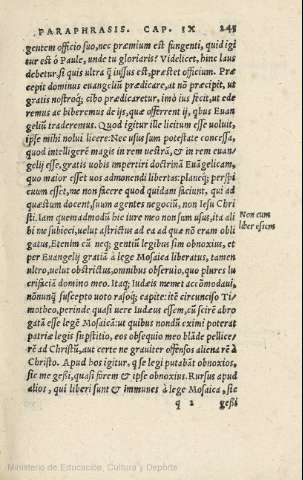 PARAPHRASIS. CAP. IX 245
gentem officio suo, nec præmium est fungenti, quid igi
tur est ò Paule, unde tu gloriaris? Videlicet, hinc laus
debetur, si quis ultra quàm iussus est, præstet officium. Præ
cepit dominus euangeliũ prædicare, at nõ præcipit, ut
gratis nostroq; cibo prædicaretur, imò ius fecit, ut ede
remus ac biberemus de ijs, quæ offerrent ij, qbus Euan
geliũ traderemus. Quod igitur ille licitum esse uoluit,
ipse mihi nolui licere: Nec usus sum potestate concessa,
quod intelligerē magis in rem uestrā, & in rem euan/
gelij esse, gratis uobis impertiri doctrinā Euāgelicam,
quo maior esset uos admonendi libertas: planeq; perspi
cuum esset, me non facere quod quidam faciunt, qui ad
quæstum docent, suum agentes negociũ, non Iesu Chri
sti. Iam quemadmodũ hic iure meo non sum usus, ita ali
bi me subieci, uelut astrictus ad ea ad quæ nō eram obli
gatus, Etenim cũ neq; gentiũ legibus sim obnoxius, et
per Euangelij gratiā à lege Mosaica liberatus, tamen
ultro, uelut obstrictus, omnibus obseruio, quo plures lu
crifaciā domino meo. Itaq; Iudæis memet accōmodaui,
nōnunq̃ suscepto uoto rasoq; capite: itē circunciso Ti/
motheo, perinde quasi uere Iudæus essem, cũ scirē abro
gatā esse legē Mosaicā: ut quibus nondũ eximi poterat
patriæ legis supstitio, eos obsequio meo blādè pellice/
rē ad Christũ, aut certe ne grauiter offensos alienarē à
Christo. Apud hos igitur, q se legi putabāt obnoxios,
sic me gessi, quasi forem & ipse obnoxius. Rursus apud
alios, qui liberi sunt & immunes à lege Mosaica, sic
q 2 gessi
Non cum
liber essem
Ministerio de Educación, Cultura y Deporte